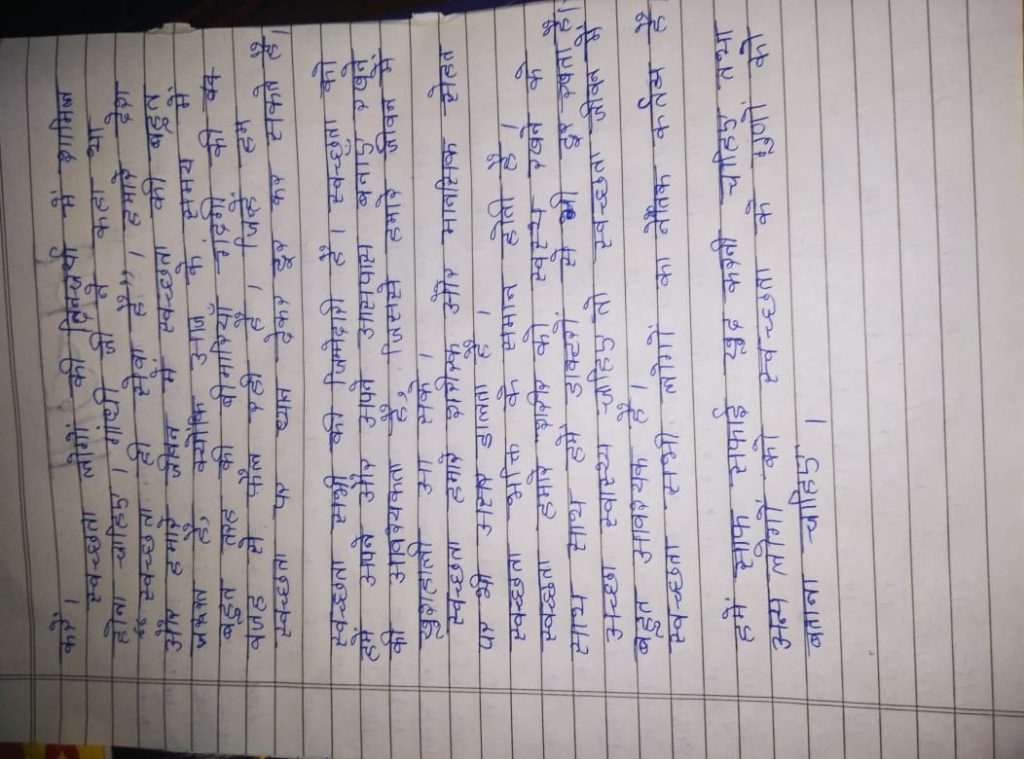 करें।
स्वच्छता लोगों की दिनचर्या में शामिल
होना चाहिए। गांधी जी ने कहा था
"स्वच्छता ही सेवा है"। हमारे देश
और हमारे जीवन में स्वच्छता की बहुत
जरूरत है, क्योंकि आज के समय में
बहुत तरह की बीमारियाँ गंदगी की वजह
से फैल रही है। जिन्हें हम
स्वच्छता पर ध्यान देकर दूर कर सकते है।
स्वच्छता सभी की जिम्मेदारी है। स्वच्छता को
हमें अपने और अपने आसपास बनाए रखने
की आवश्यकता है, जिससे हमारे जीवन में
खुशहाली आ सके।
स्वच्छता हमारे शारीरिक और मानसिक सेहत
पर भी असर डालता है।
स्वच्छता भक्ति के समान होती है।
स्वच्छता हमारे शरीर को स्वस्थ रखने के
साथ साथ हमें डाक्टरों से भी दूर रखता है।
अच्छा स्वास्थ्य चाहिए तो स्वच्छता जीवन में
बहुत आवश्यक है।
स्वच्छता सभी लोगों का नैतिक कर्तव्य है।
हमें साफ सफाई खुद करनी चाहिए तथा
अन्य लोगों को स्वच्छता के गुणों को
बताना चाहिए।